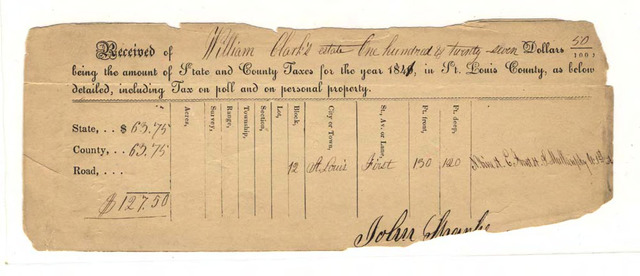 Received of William Clark's estate One hundred & twenty-seven Dollars 50/100,
being the amount of State and County Taxes for the year 184, in St. Louis County, as below
detailed, including Tax on poll and on personal property.
Acres, Survey, Range, Township, Section, Lot, Block, City or Town, St., Av. or Lane, Ft. front, Ft. deep,
State, . . $ 63.75
County, . . 63.75
Road, . . . 12 St. Louis First 130 120
$ 127.50
John